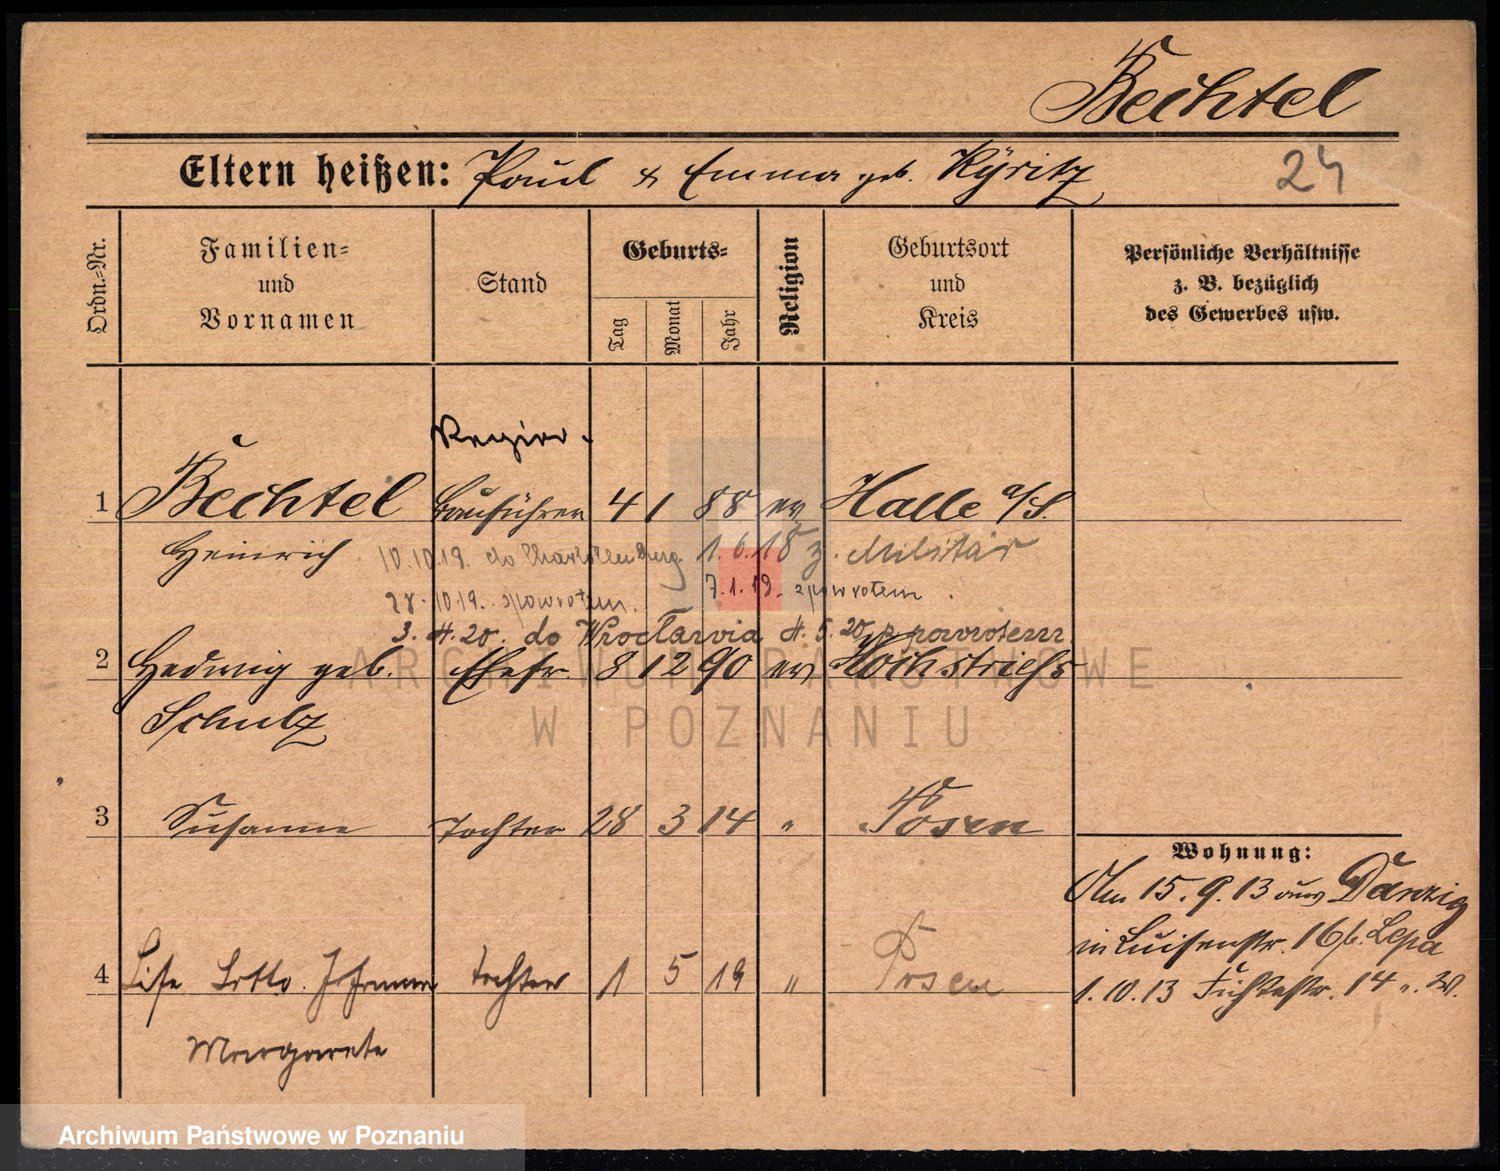 Bechtel
Eltern heißen: Paul & Emma geb. Kyritz
24
Ordn.-Nr.
Familien- und Vornamen
Stand
Geburts-
Tag
Monat
Jahr
Religion
Geburtsort und Kreis
Persönliche Verhältnisse z. B. bezüglich des Gewerbes usw.
Regier.
1 Bechtel Bauführer 4 1 88 ev Halle a/S.
Heinrich
10.10.19. do Charlottenburg. 1.6.18 z. Militär
28.10.19. spowrotem. 7.1.19. spowrotem.
3. 4. 20. do Wrocławia 4. 5. 20 z powrotem
2 Hedwig geb. Ehefr. 8 12 90 ev Hochstrieß
Schulz
ARCHIWUM PAŃSTWOWE
W POZNANIU
3 Susanne Tochter 28 3 14 " Posen
Wohnung:
15.9.13 aus Danzig
in Luisenstr. 16 b. Lepa
4 Lise Lotte Johanna Tochter 1 5 19 " Posen
1.10.13 14 W.
Margarete
Archiwum Państwowe w Poznaniu